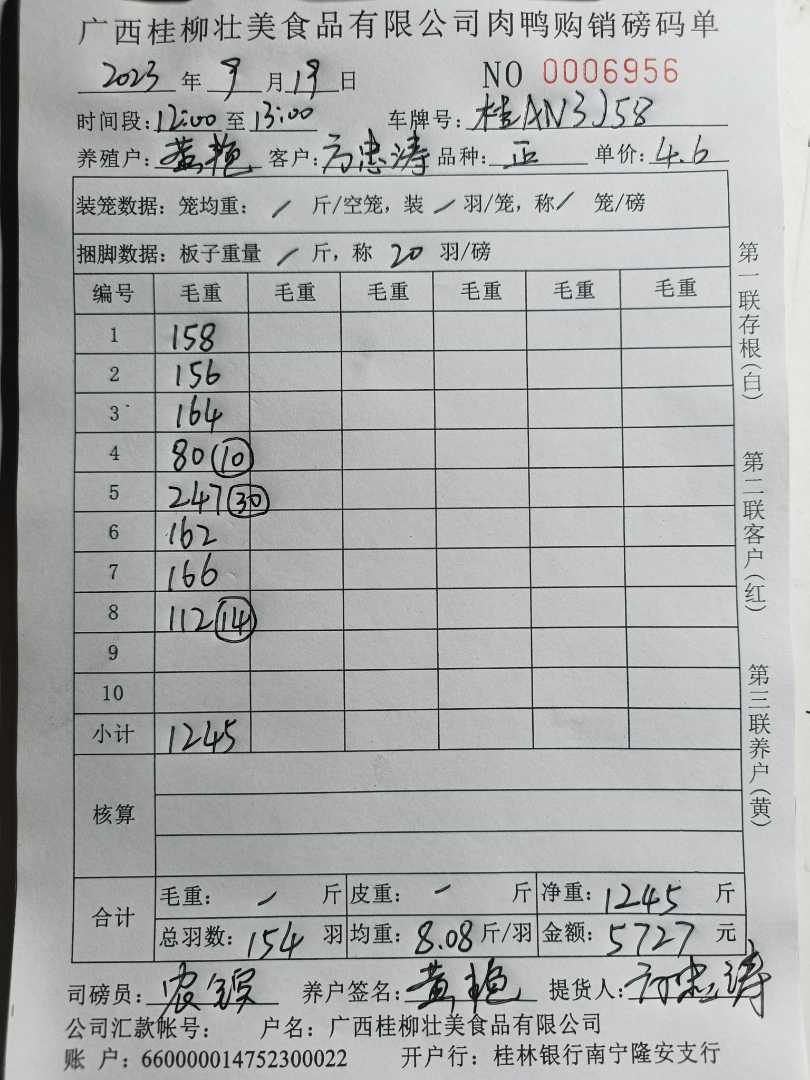 广西桂柳壮美食品有限公司肉鸭购销磅码单
2023 年 9 月 19 日 NO 0006956
时间段: 12:00 至 13:00 车牌号: 桂AN3J58
养殖户: 黄艳 客户: 方忠涛 品种: 正 单价: 4.6
装笼数据: 笼均重: / 斤/空笼, 装 / 羽/笼, 称 / 笼/磅
捆脚数据: 板子重量 / 斤, 称 20 羽/磅
编号 毛重 毛重 毛重 毛重 毛重 毛重
1 158
2 156
3 164
4 80 10
5 247 30
6 162
7 166
8 112 14
9
10
小计 1245
核算
合计
毛重: / 斤 皮重: - 斤 净重: 1245 斤
总羽数: 154 羽 均重: 8.08 斤/羽 金额: 5727 元
司磅员: 农 养户签名: 黄艳 提货人: 方忠涛
公司汇款帐号: 户名: 广西桂柳壮美食品有限公司
账 户: 660000014752300022 开户行: 桂林银行南宁隆安支行
第一联存根(白)
第二联客户(红)
第三联养户(黄)